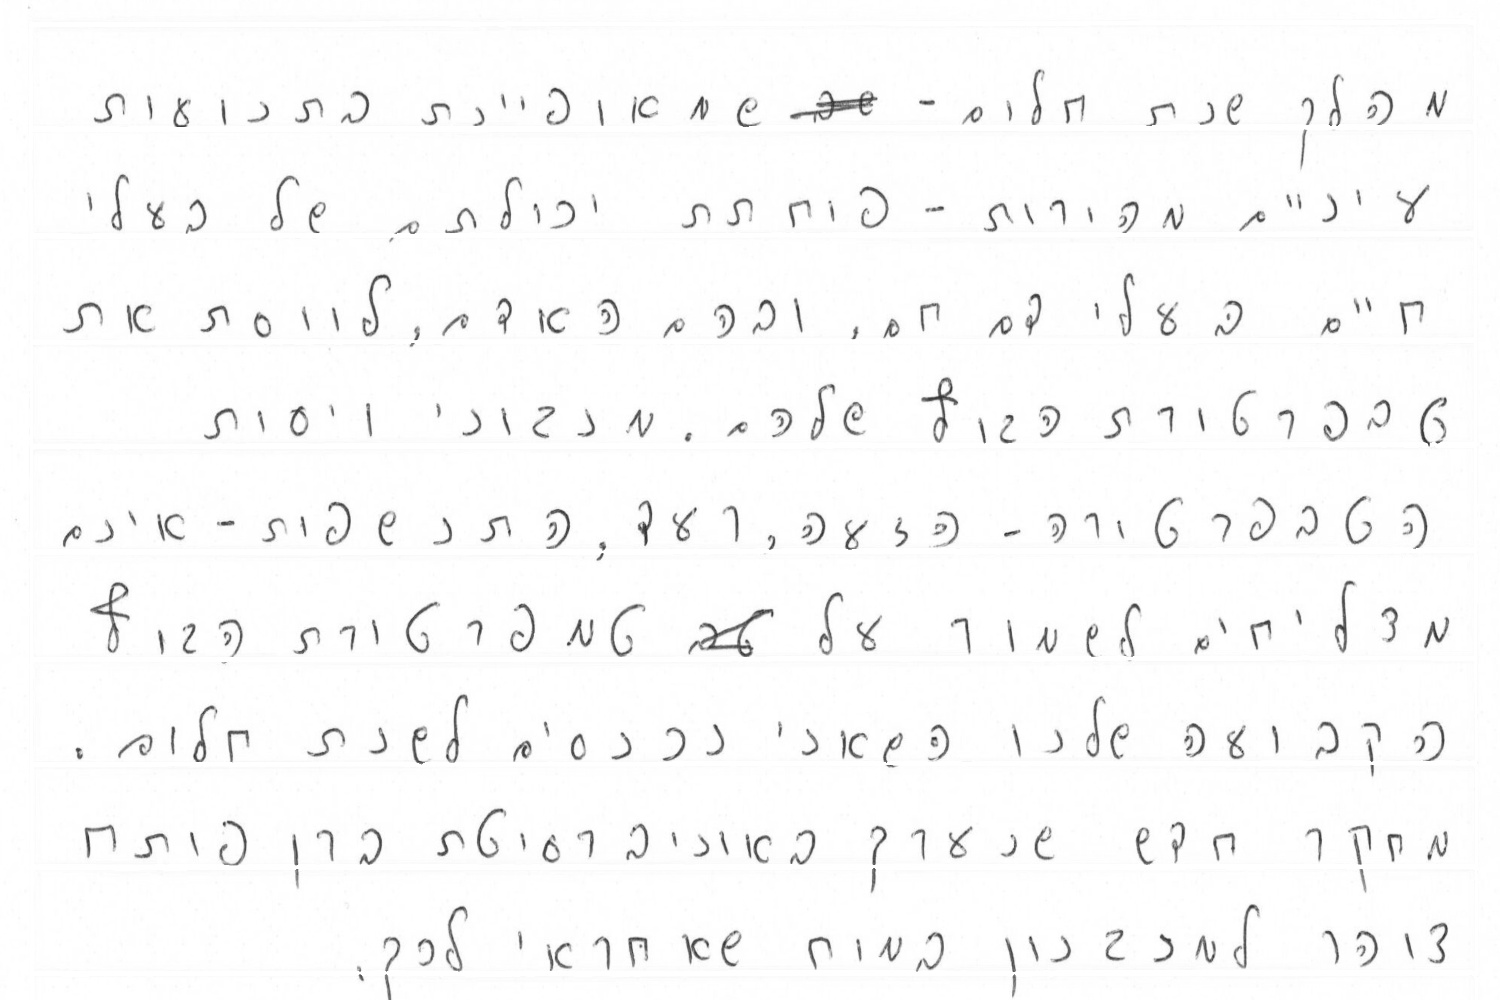 מהלך שנת חלום - שמאופיינת בתנועות
עיניים מהירות - פוחתת יכולתם של בעלי
חיים בעלי דם חם, ובהם האדם, לווסת את
טבפרטורת הגוף שלהם. מנגנוני ויסות
הטבפרטורה - הזעה, רעד, התנשפות - אינם
מצליחים לשמור על טמפרטורת הגוף
הקבועה שלנו כשאני נכנסים לשנת חלום.
מחקר חדש שנערך באוניברסיטת ברן פותח
צוהר למנגנון במוח שאחראי לכך.